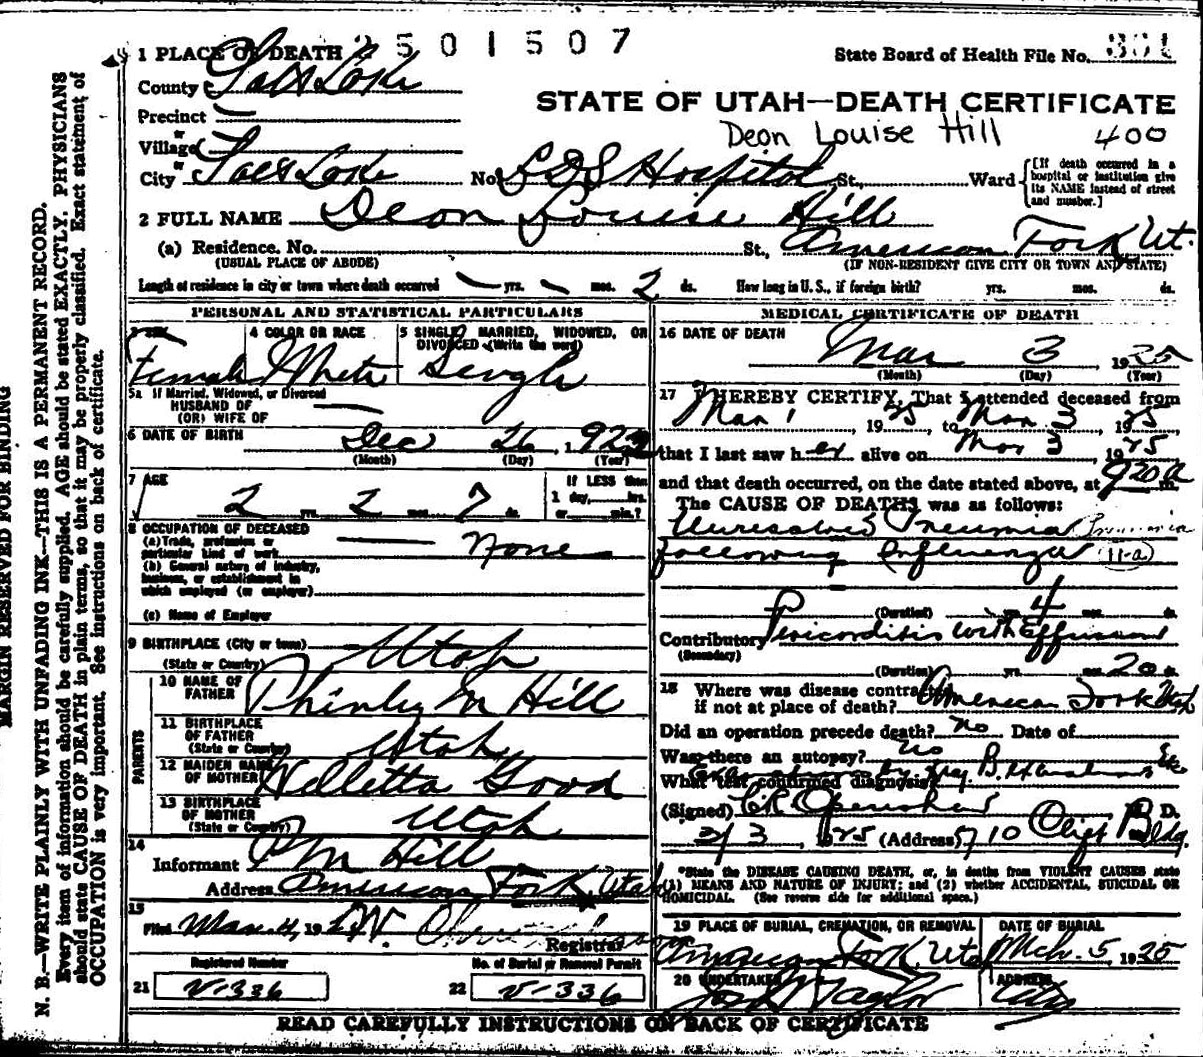 1 PLACE OF DEATH 2501507
State Board of Health File No. 301
County Salt Lake
STATE OF UTAH—DEATH CERTIFICATE
Precinct
or
Village
Deon Louise Hill 400
or
City Salt Lake No. LDS Hospital St., Ward
[If death occurred in a hospital or institution give its NAME instead of street and number.]
2 FULL NAME Deon Louise Hill
(a) Residence. No. St., American Fork Ut.
(USUAL PLACE OF ABODE) (IF NON-RESIDENT GIVE CITY OR TOWN AND STATE)
Length of residence in city or town where death occurred — yrs. — mos. 2 ds. How long in U. S., if foreign birth? yrs. mos. ds.
PERSONAL AND STATISTICAL PARTICULARS
3 SEX 4 COLOR OR RACE 5 SINGLE, MARRIED, WIDOWED, OR
DIVORCED (Write the word)
Female White Single
5a If Married, Widowed, or Divorced
HUSBAND OF
(OR) WIFE OF —
6 DATE OF BIRTH Dec 26 1922
(Month) (Day) (Year)
7 AGE 2 yrs. 2 mos. 7 ds.
If LESS than
1 day, hrs.
or min.?
8 OCCUPATION OF DECEASED
(a) Trade, profession or
particular kind of work None
(b) General nature of industry,
business, or establishment in
which employed (or employer)
(c) Name of Employer
9 BIRTHPLACE (City or town)
(State or Country) Utah
PARENTS
10 NAME OF
FATHER M Hill
11 BIRTHPLACE
OF FATHER
(State or Country) Utah
12 MAIDEN NAME
OF MOTHER Nelletta Good
13 BIRTHPLACE
OF MOTHER
(State or Country) Utah
14
Informant P M Hill
Address American Fork, Utah
15
Filed Mar. 4, 192
Registrar
Registered Number No. of Burial or Removal Permit
21 V-336 22 V-336
MEDICAL CERTIFICATE OF DEATH
16 DATE OF DEATH Mar 3 1925
(Month) (Day) (Year)
17 I HEREBY CERTIFY, That I attended deceased from
Mar 1, 1925, to Mar 3, 1925,
that I last saw her alive on Mar 3, 1925
and that death occurred, on the date stated above, at 920 a m.
The CAUSE OF DEATH* was as follows:
Unresolved Pneumonia Pneumonia
following Influenza (11-a)
(Duration) yrs. 4 mos. ds.
Contributory Pericarditis with Effusion
(Secondary)
(Duration) yrs. mos. 20 ds.
18 Where was disease contracted
if not at place of death? American Fork Utah
Did an operation precede death? no Date of
Was there an autopsy? no
What test confirmed diagnosis?
(Signed) M. D.
3/3 1925 (Address) 710 Clift Bldg.
*State the DISEASE CAUSING DEATH, or, in deaths from VIOLENT CAUSES state
(1) MEANS AND NATURE OF INJURY; and (2) whether ACCIDENTAL, SUICIDAL OR
HOMICIDAL. (See reverse side for additional space.)
19 PLACE OF BURIAL, CREMATION, OR REMOVAL DATE OF BURIAL
American Fork, Utah Mch. 5, 1925
20 UNDERTAKER ADDRESS
Taylor City
READ CAREFULLY INSTRUCTIONS ON BACK OF CERTIFICATE
MARGIN RESERVED FOR BINDING
N. B.—WRITE PLAINLY WITH UNFADING INK—THIS IS A PERMANENT RECORD.
Every item of information should be carefully supplied. AGE should be stated EXACTLY. PHYSICIANS
should state CAUSE OF DEATH in plain terms, so that it may be properly classified. Exact statement of
OCCUPATION is very important. See instructions on back of certificate.